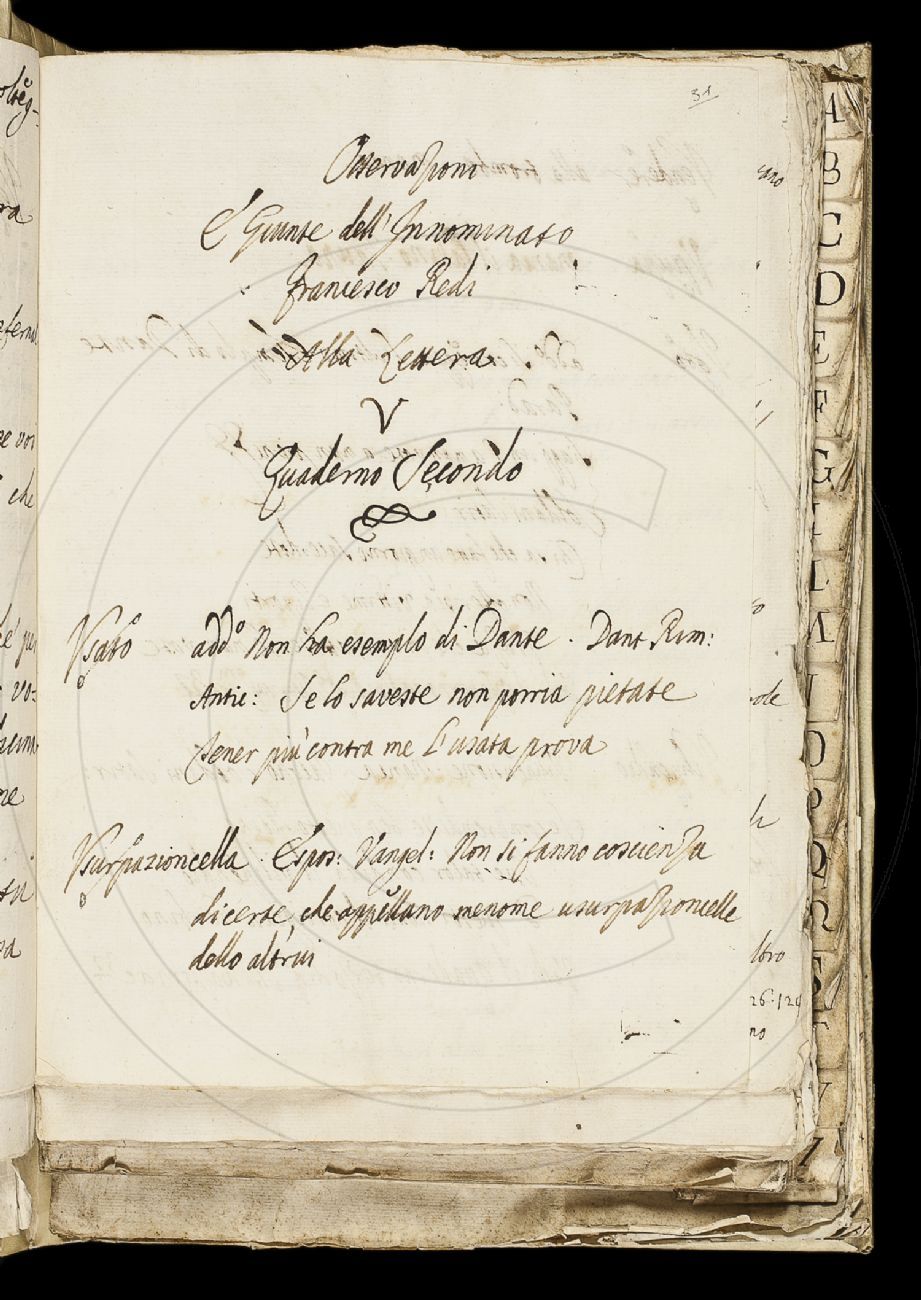 31
Osservazioni
E Giunte dell'Innominato
Francesco Redi
Alla Lettera
V
Quaderno Secondo
Usato add.o Non ha esemplo di Dante. Dant. Rim:
Antic: Se lo saveste non porria pietate
Tener più contra me l'usata prova
Usurpazioncella. Espos: Vangel: Non si fanno coscienza
di certe, che appellano menome usurpazioncelle
dello altrui
A
B
C
D
E
F
G
I
L
O
P
Q
R
S
T
V
Z
ltro
26.126
no